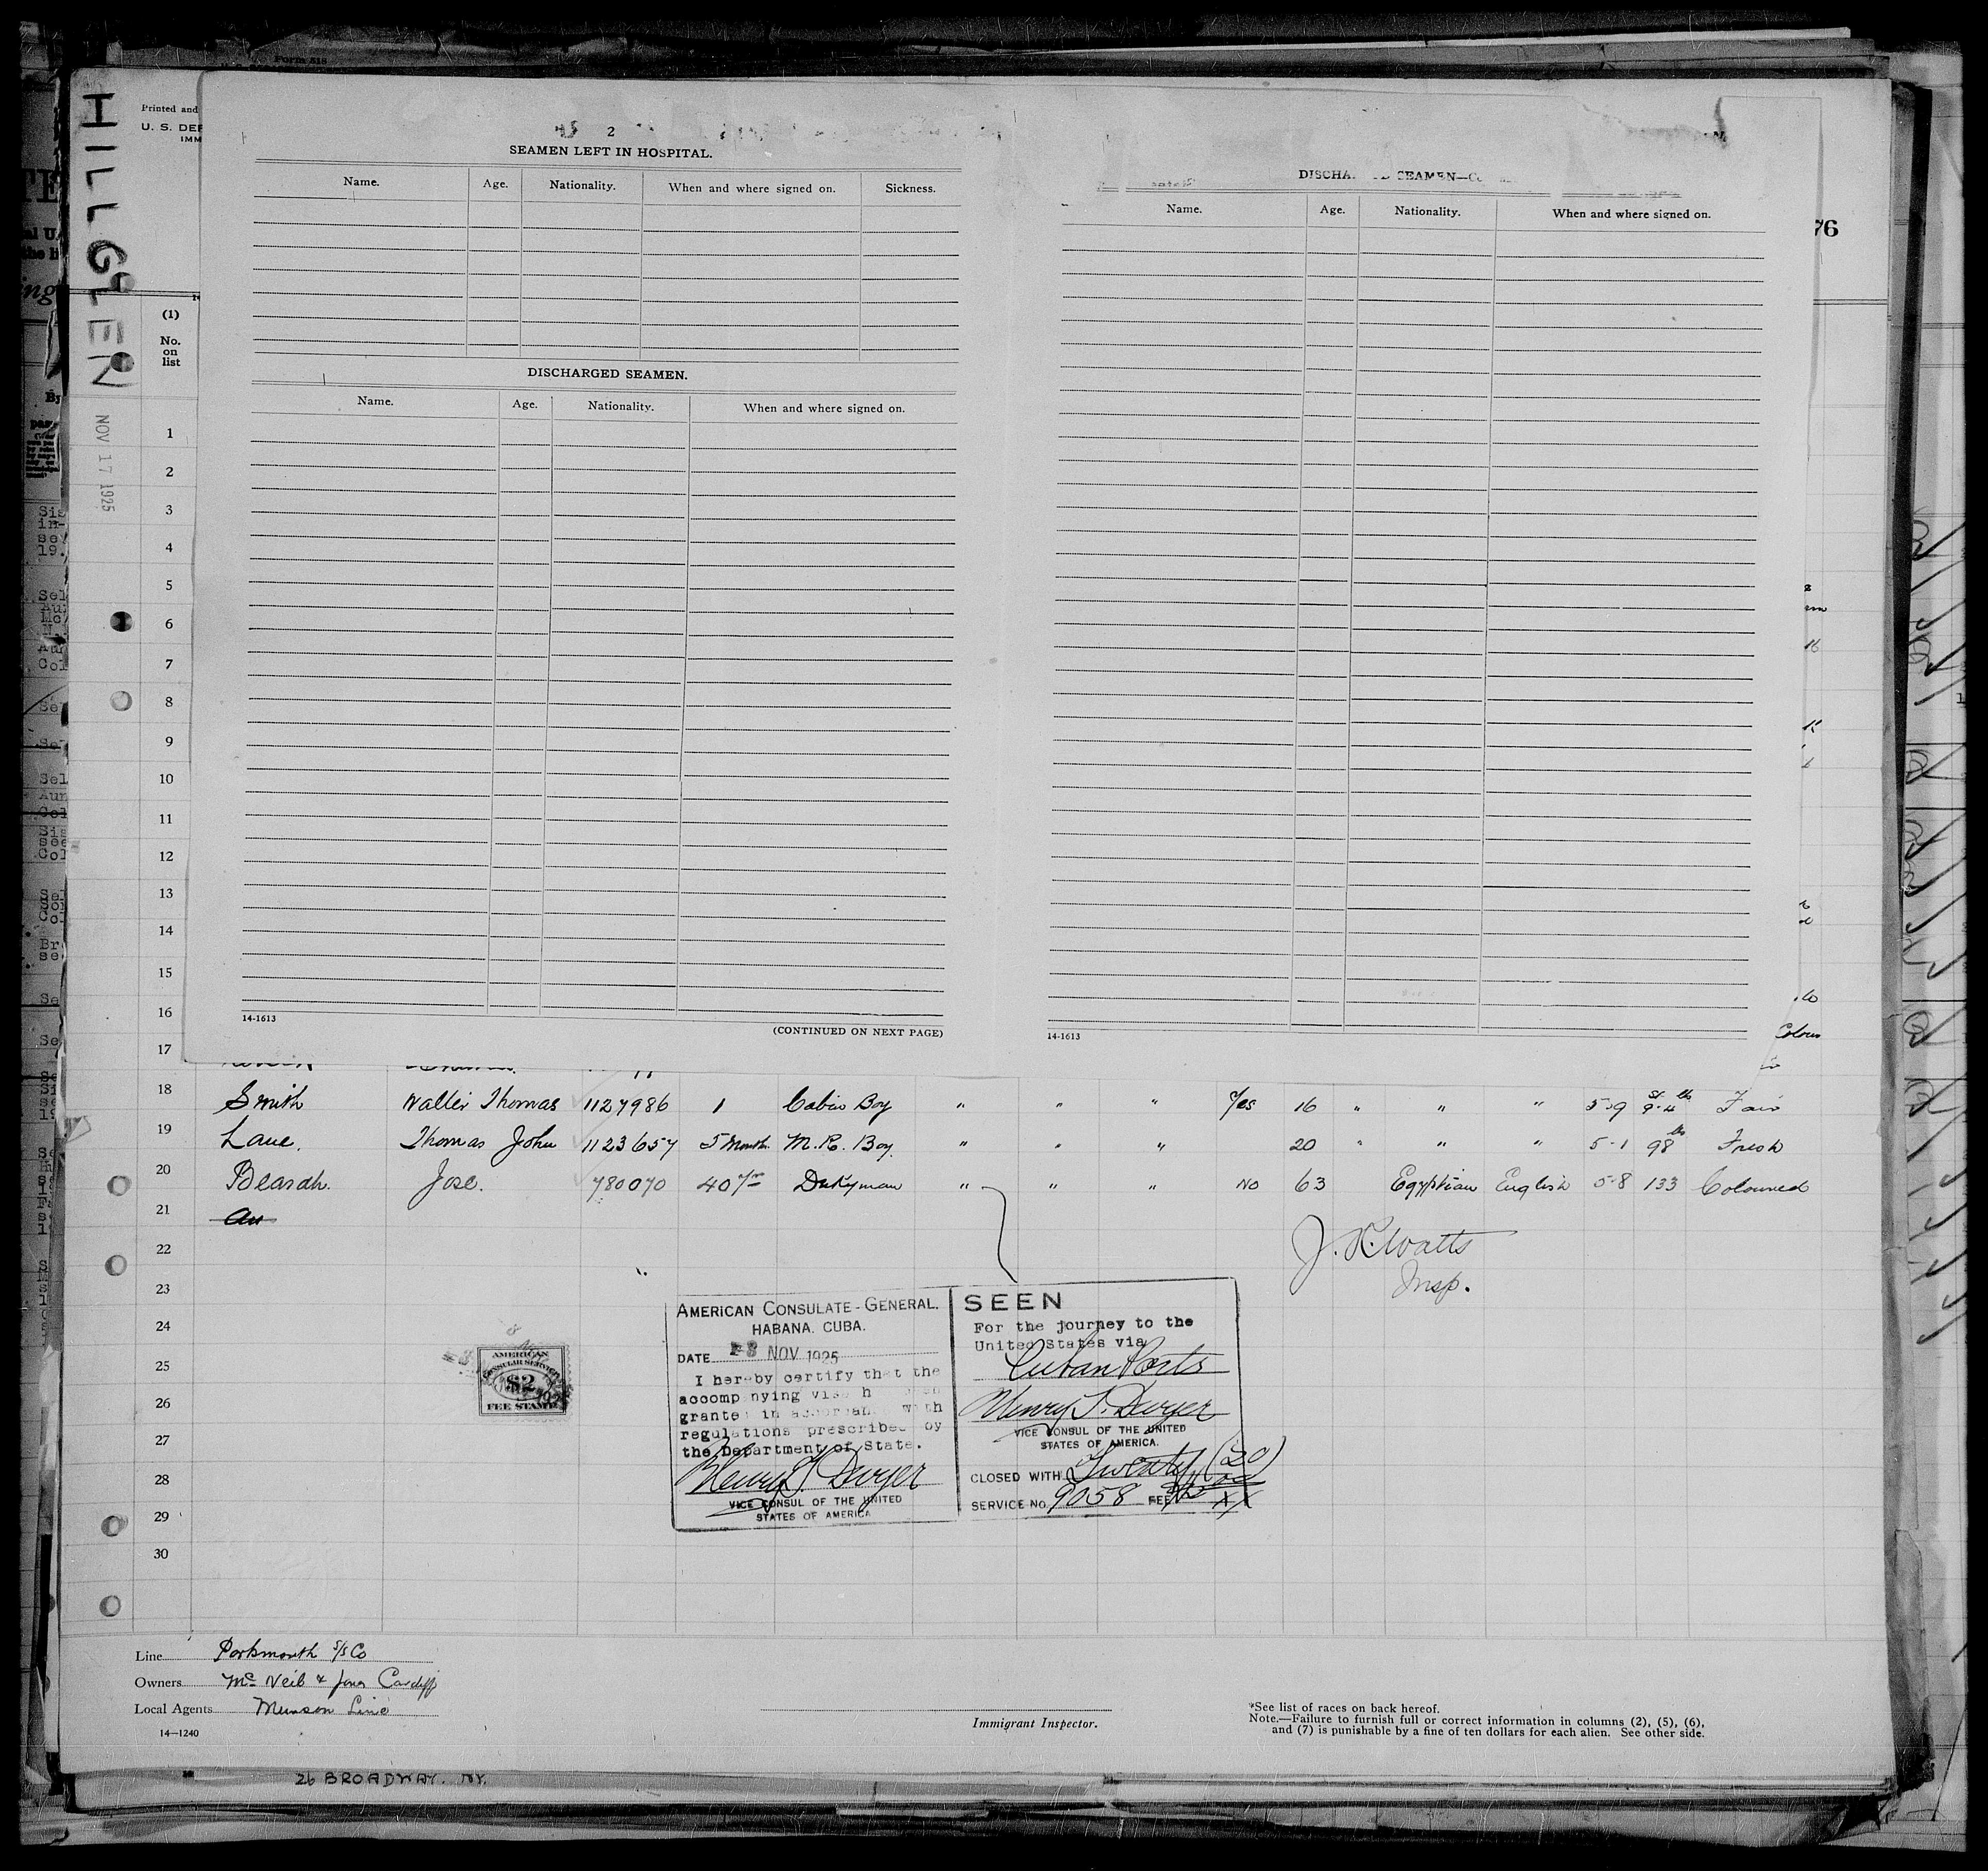 HILLGLEN
NOV 17 1925
Printed and
U. S. DEP
IMM
76
2
SEAMEN LEFT IN HOSPITAL.
Name. Age. Nationality. When and where signed on. Sickness.
DISCHARGED SEAMEN.
Name. Age. Nationality. When and where signed on.
14-1613
(CONTINUED ON NEXT PAGE)
Name. Age. Nationality. When and where signed on.
14-1613
(1)
No.
on
list
1
2
3
4
5
6
7
8
9
10
11
12
13
14
15
16
17
18 Smith Walter Thomas 1127986 1 Cabin Boy " " " Yes 16 " " " 5-9 9-4 Fair
19 Lane. Thomas John 1123657 5 Month. M.R. Boy. " " " 20 " " " 5-1 98 lbs Fresh
20 Bearah. Jose. 780070 40 yrs Dnkyman " " " No 63 Egyptian English 5-8 133 Coloured
21
22
23
24
25
26
27
28
29
30
J. R. Watts
Insp.
AMERICAN
CONSULAR SERVICE
$2
FEE STAMP
AMERICAN CONSULATE-GENERAL.
HABANA, CUBA.
DATE 8 NOV 1925
I hereby certify that the
accompanying visa h
granted in with
regulations prescribed by
the Department of State.
Henry T. Dwyer
VICE CONSUL OF THE UNITED
STATES OF AMERICA
SEEN
For the journey to the
United States via
Cuban Ports
Henry T. Dwyer
VICE CONSUL OF THE UNITED
STATES OF AMERICA.
CLOSED WITH Twenty (20)
SERVICE NO. 9058 FEE
Line Portsmouth S/S Co
Owners McNeil & Jones Cardiff
Local Agents Munson Line
14-1240
Immigrant Inspector.
*See list of races on back hereof.
Note.—Failure to furnish full or correct information in columns (2), (5), (6),
and (7) is punishable by a fine of ten dollars for each alien. See other side.
26 BROADWAY. NY.